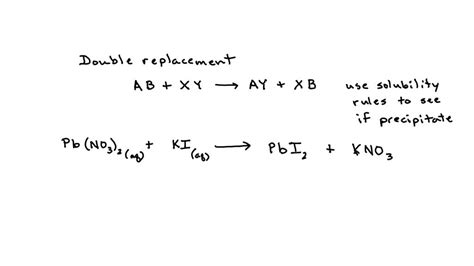 Double replacement
AB + XY → AY + XB
use solubility
rules to see
if precipitate
Pb(NO₃)₂(aq) + KI(aq) → PbI₂ + KNO₃